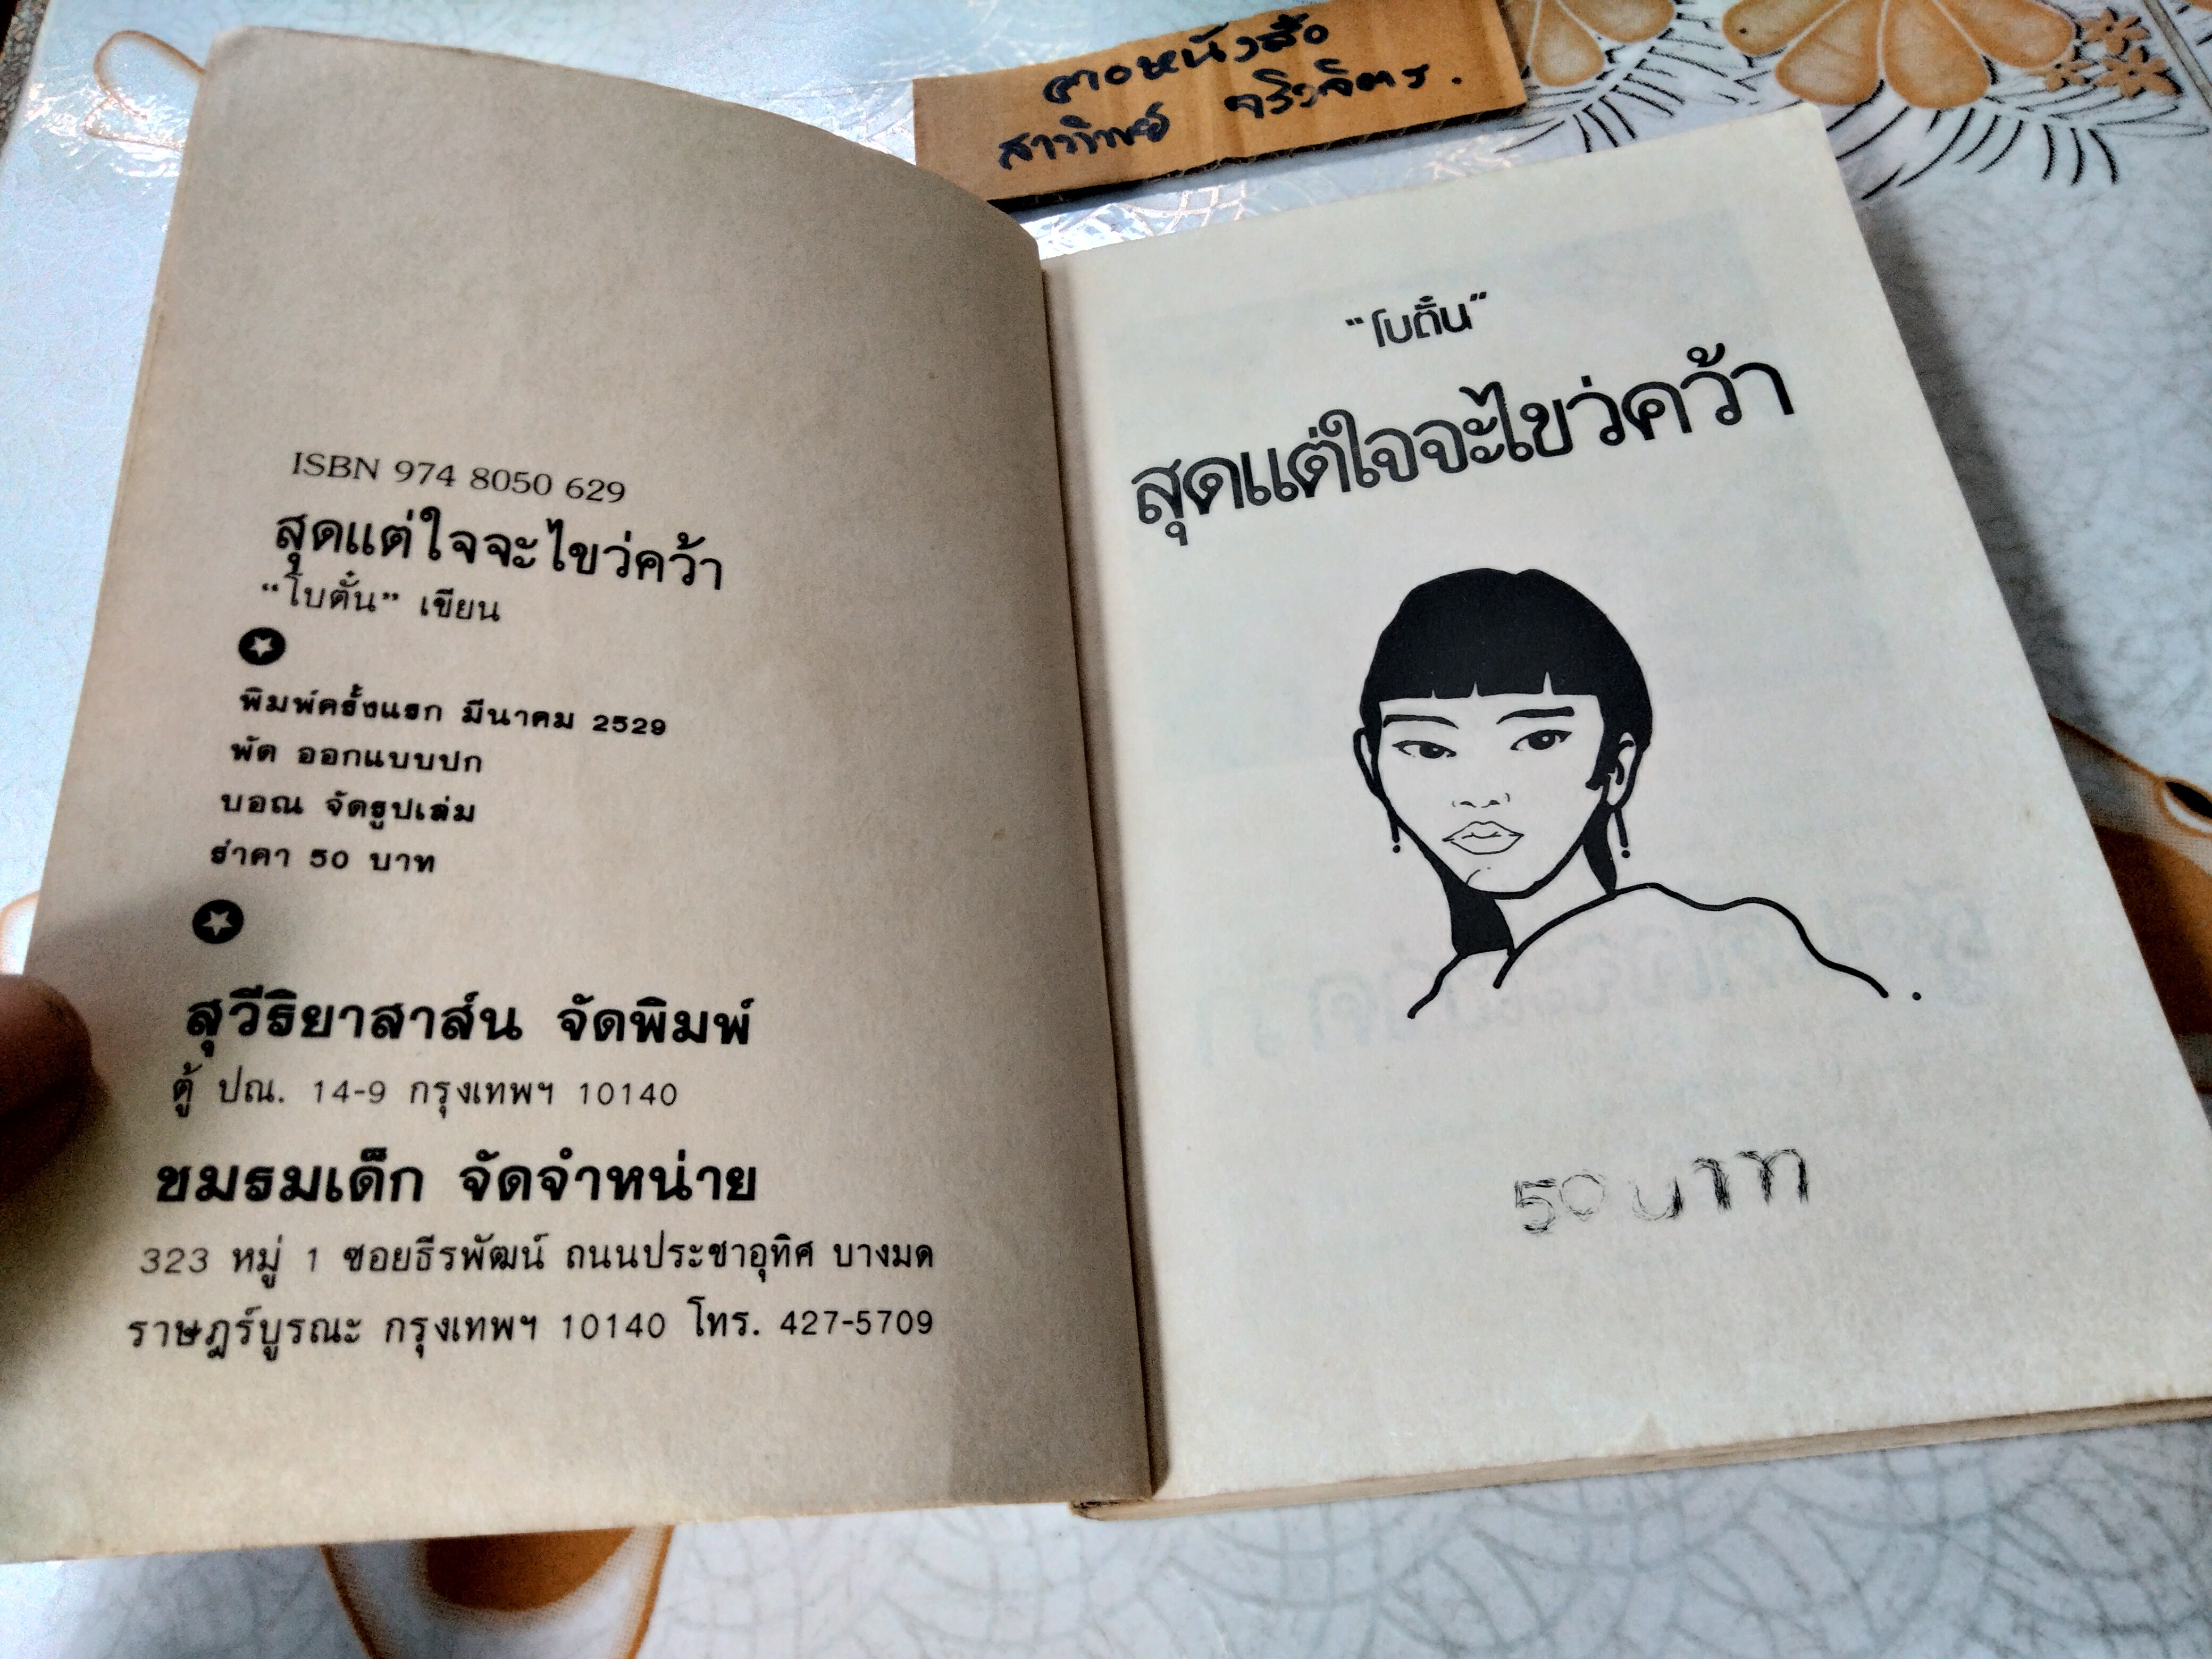 ฅอหนังสือ
สาวทิพย์ จริงจิตร.
ISBN 974 8050 629
สุดแต่ใจจะไขว่คว้า
“โบตั๋น” เขียน
พิมพ์ครั้งแรก มีนาคม 2529
พัด ออกแบบปก
บอณ จัดรูปเล่ม
ราคา 50 บาท
สุวีริยาสาส์น จัดพิมพ์
ตู้ ปณ. 14-9 กรุงเทพฯ 10140
ชมรมเด็ก จัดจำหน่าย
323 หมู่ 1 ซอยธีรพัฒน์ ถนนประชาอุทิศ บางมด
ราษฎร์บูรณะ กรุงเทพฯ 10140 โทร. 427-5709
“โบตั๋น”
สุดแต่ใจจะไขว่คว้า
50 บาท